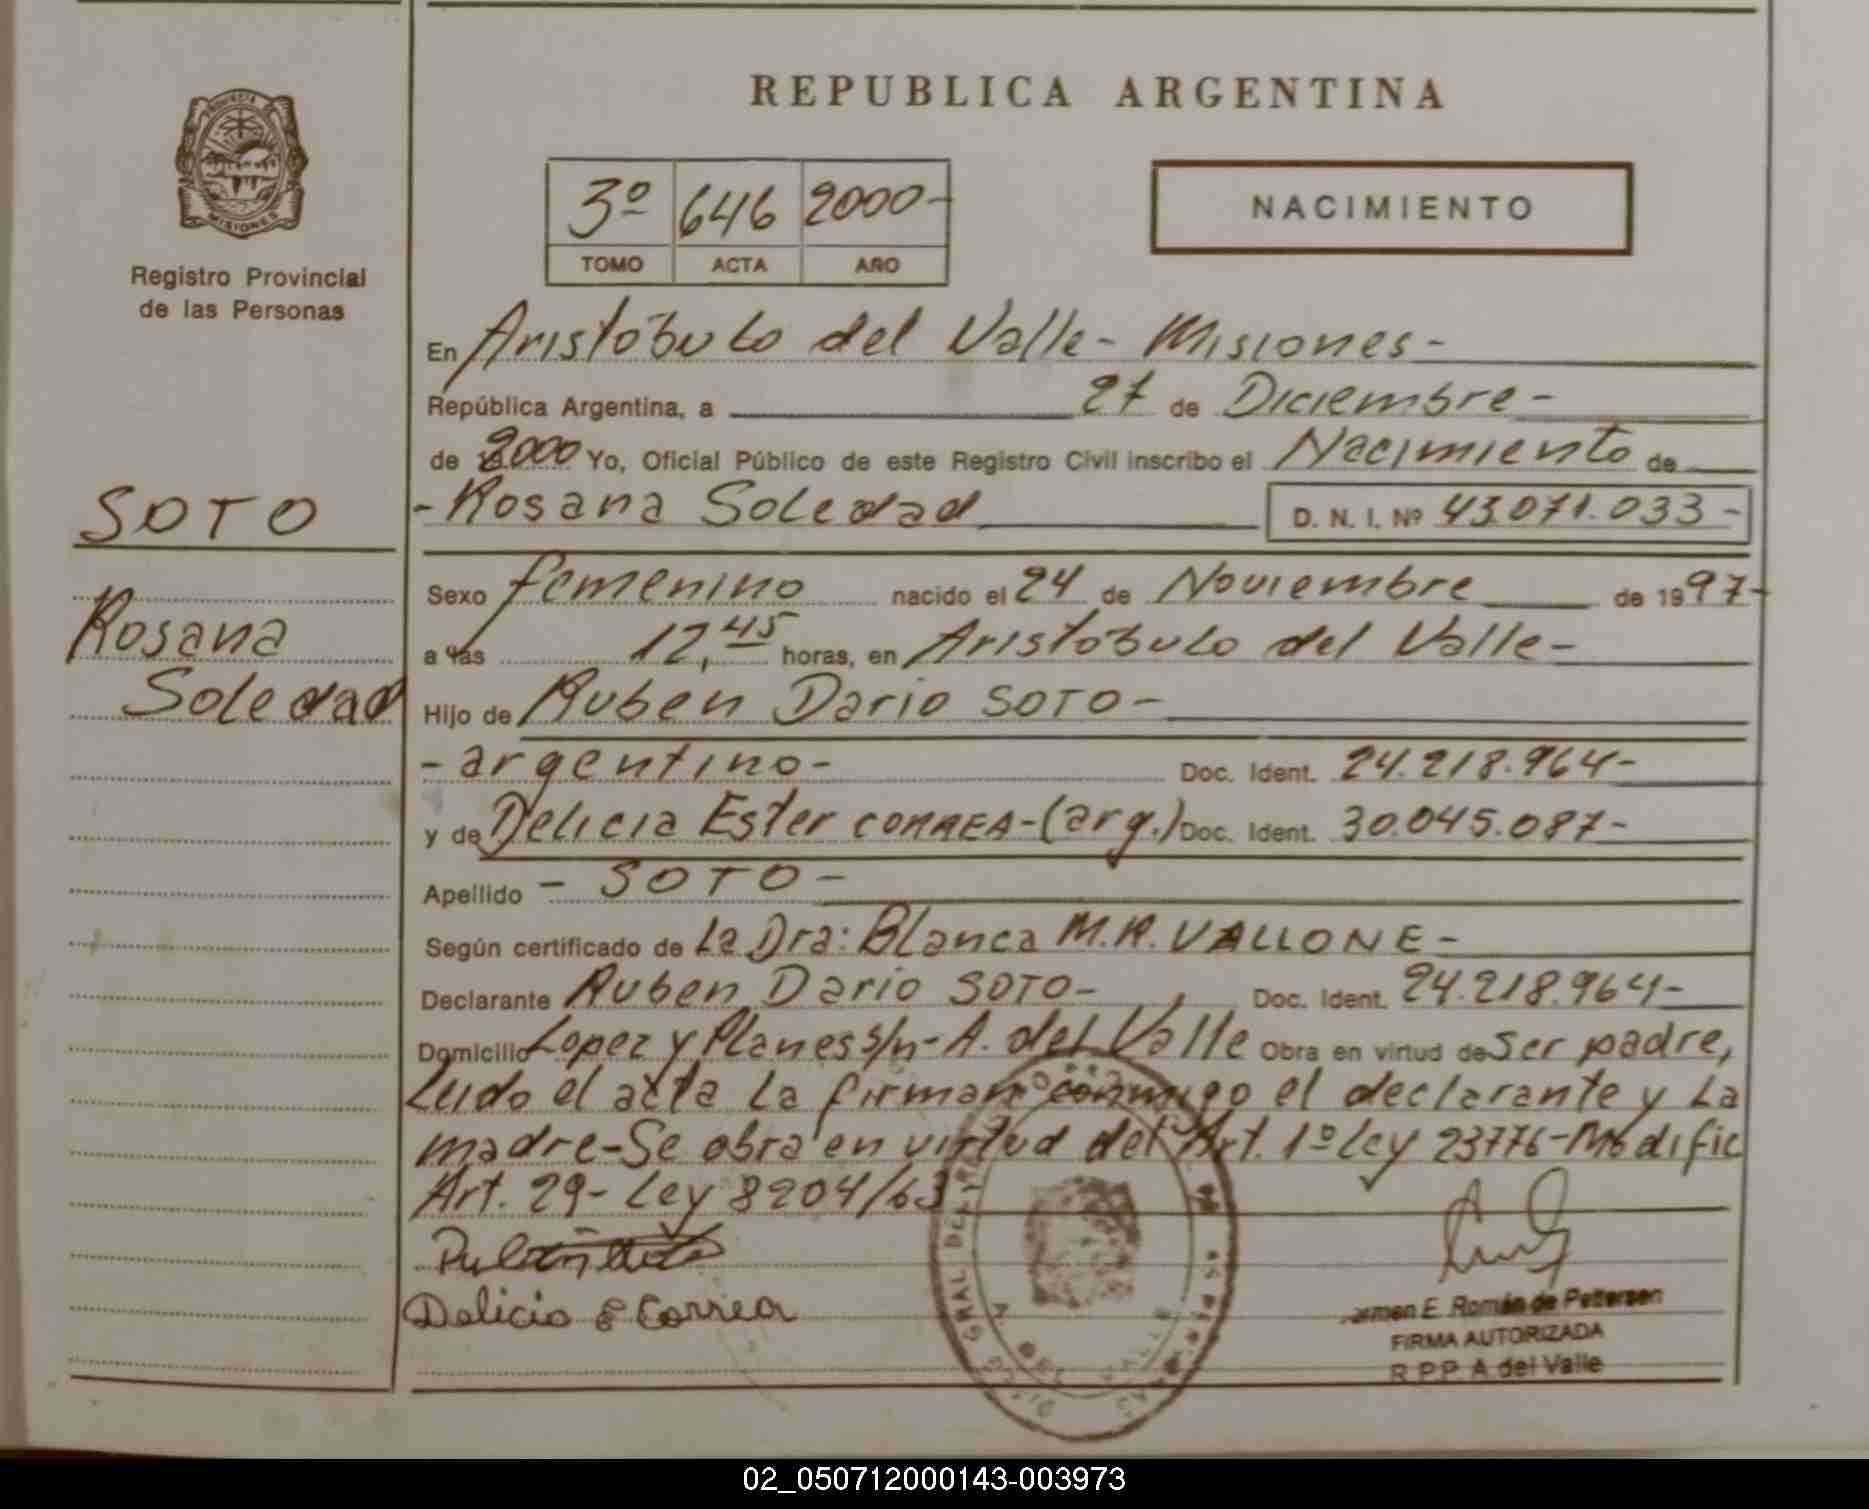 REPUBLICA ARGENTINA
PROVINCIA DE
MISIONES
Registro Provincial
de las Personas
3º 646 2000-
TOMO ACTA AÑO
NACIMIENTO
En Aristóbulo del Valle- Misiones-
República Argentina, a 27 de Diciembre-
de 2000 Yo, Oficial Público de este Registro Civil inscribo el Nacimiento de
SOTO
-Rosana Soledad D. N. I. Nº 43.071.033-
Sexo femenino nacido el 24 de Noviembre de 1997-
Rosana
a las 12,45 horas, en Aristóbulo del Valle-
Soledad
Hijo de Ruben Dario SOTO-
-argentino- Doc. Ident. 24.218.964-
y de Delicia Ester CORREA-(arg.) Doc. Ident. 30.045.087-
Apellido - SOTO-
Según certificado de La Dra: Blanca M.R. VALLONE-
Declarante Ruben Dario SOTO- Doc. Ident. 24.218.964-
Domicilio Lopez y Planes s/n- A. del Valle Obra en virtud de ser padre,
Leido el acta la firman conmigo el declarante y La
madre-Se obra en virtud del Art. 1º Ley 23776-Modific
Art. 29- Ley 8204/63
Delicia E Correa
E. Román de Pettersen
FIRMA AUTORIZADA
R.P.P. A. del Valle
02_050712000143-003973